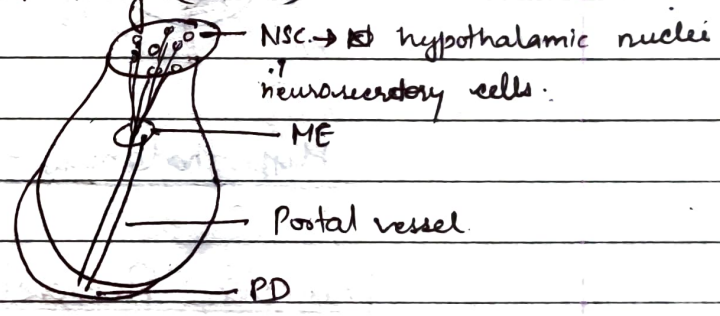 NSC → hypothalamic nuclei
neurosecretory cells.
ME
Portal vessel
PD